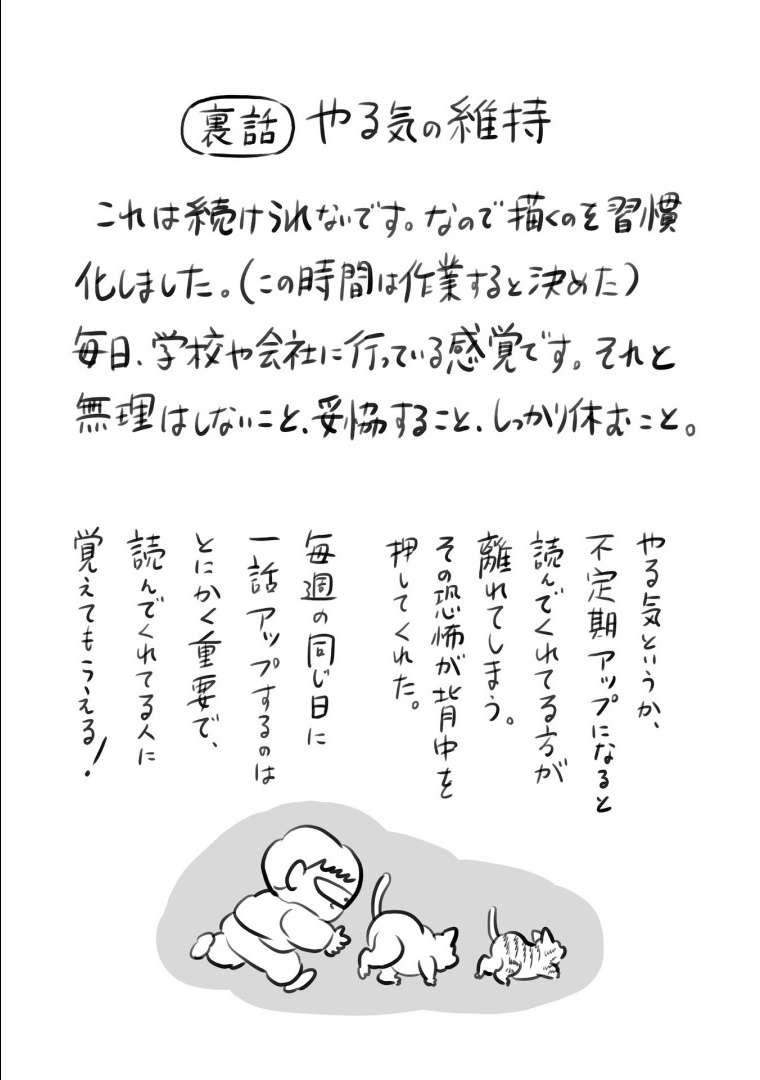 裏話 やる気の維持
これは続けられないです。なので描くのを習慣
化しました。(この時間は作業すると決めた)
毎日、学校や会社に行っている感覚です。それと
無理はしないこと、妥協すること、しっかり休むこと。
やる気というか、
不定期アップになると
読んでくれてる方が
離れてしまう。
その恐怖が背中を
押してくれた。
毎週の同じ日に
一話アップするのは
とにかく重要で、
読んでくれてる人に
覚えてもらえる!